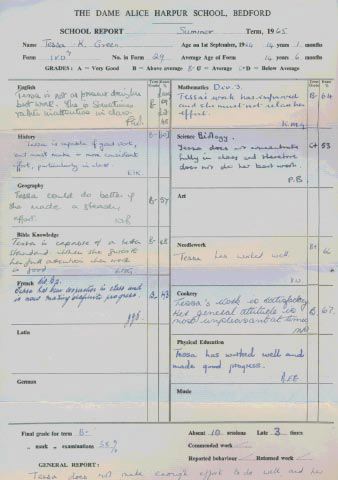 THE DAME ALICE HARPUR SCHOOL, BEDFORD
SCHOOL REPORT Summer Term, 1965
Name Tessa K. Green Age on 1st September, 1964 14 years 1 months
Form No. in Form 29 Average Age of Form 14 years 6 months
GRADES: A = Very Good B = Above average C = Average D = Below Average
English
Tessa is not at present doing her
best work. She is sometimes
rather inattentive in class.
History
Tessa is capable of good work,
but must make a more consistent
effort, particularly in class.
Geography
Tessa could do better if
she made a steady
effort.
B- 57
Bible Knowledge
Tessa is capable of a
standard when she
her full attention her work
is good
B- 68
French Div 2.
Tessa has been in class and
is now making definite progress.
Latin
German
Mathematics Div 3.
Tessa's work has improved
and she must not relax her
effort.
B- 64
Science Biology.
Tessa does not concentrate
fully in class and therefore
does not do her best work.
P.B.
C+ 53
Art
Needlework
Tessa has worked well.
B+ 66
Cookery
Tessa's work is satisfactory.
Her general attitude is
most unpleasant at times
B- 67
Physical Education
Tessa has worked well and
made good progress.
Music
Final grade for term B-
" mark " examinations 58%
Absent 10 sessions Late 3 times
Commended work
Reported behaviour Returned work
GENERAL REPORT:
Tessa does not make enough effort to do well and her